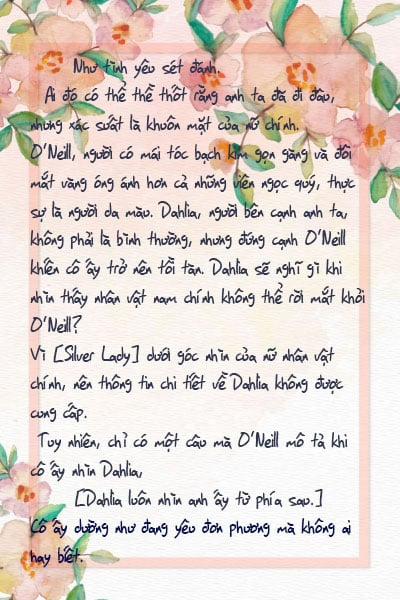 Như tình yêu sét đánh.
Ai đó có thể thề thốt rằng anh ta đã đi đâu,
nhưng xác suất là khuôn mặt của nữ chính.
O'Neill, người có mái tóc bạch kim gọn gàng và đôi
mắt vàng óng ánh hơn cả những viên ngọc quý, thực
sự là người da màu. Dahlia, người bên cạnh anh ta,
không phải là bình thường, nhưng đứng cạnh O'Neill
khiến cô ấy trở nên tồi tàn. Dahlia sẽ nghĩ gì khi
nhìn thấy nhân vật nam chính không thể rời mắt khỏi
O'Neill?
Vì [Silver Lady] dưới góc nhìn của nữ nhân vật
chính, nên thông tin chi tiết về Dahlia không được
cung cấp.
Tuy nhiên, chỉ có một câu mà O'Neill mô tả khi
cô ấy nhìn Dahlia,
[Dahlia luôn nhìn anh ấy từ phía sau.]
Cô ấy dường như đang yêu đơn phương mà không ai
hay biết.